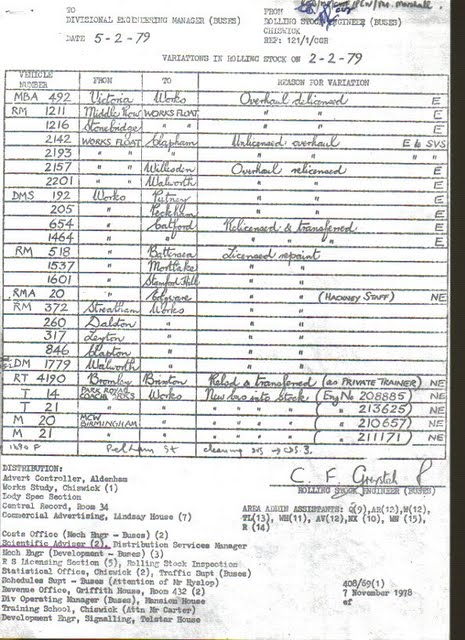 TO
DIVISIONAL ENGINEERING MANAGER (BUSES)
DATE 5-2-79
FROM
ROLLING STOCK ENGINEER (BUSES)
CHISWICK
REF: 121/1/CGR
VARIATIONS IN ROLLING STOCK ON 2-2-79
VEHICLE NUMBER FROM TO REASON FOR VARIATION
MBA 492 Victoria Works Overhaul delicensed E
RM 1211 Middle Row WORKS FLOAT " " E
1216 Stonebridge " " " " E
2142 WORKS FLOAT Clapham Unlicensed overhaul E to SVS
2193 " " " " " " "
2157 " " Willesden Overhaul relicensed E
2201 " " Walworth " " E
DMS 192 Works Putney " " E
205 " Peckham " " E
654 " Catford Relicensed & transferred E
1464 " " " " " E
RM 518 " Battersea Licensed repaint
1537 " Mortlake " "
1601 " Stamford Hill " "
RMA 20 " Edgware " " (HACKNEY STAFF) NE
RM 372 Streatham Works " "
260 Dalston " " "
317 Leyton " " "
846 Clapton " " "
DM 1779 Walworth " " "
RT 4190 Bromley Brixton Relcd & transferred (as PRIVATE TRAINER) NE
T 14 PARK ROYAL COACH WORKS Works New bus into stock (Eng No 208885) NE
T 21 " " " " " " " 213625) NE
M 20 MCW BIRMINGHAM " " " " " 210657) NE
M 21 " " " " " " 211171) NE
Pelham St cleaning
DISTRIBUTION:
Advert Controller, Aldenham
Works Study, Chiswick (1)
Body Spec Section
Central Record, Room 34
Commercial Advertising, Lindsay House (7)
ROLLING STOCK ENGINEER (BUSES)
AREA ADMN ASSISTANTS: Q(9), AB(12), W(12),
TL(13), WH(11), AV(12), NX (10), WN (15),
R (14)
Costs Office (Mech Engr - Buses) (2)
Scientific Adviser (2), Distribution Services Manager
Mech Engr (Development - Buses) (3)
R S Licensing Section (5), Rolling Stock Inspection
Statistical Office, Chiswick (2), Traffic Supt (Buses)
Schedules Supt - Buses (Attention of Mr Hyslop)
Revenue Office, Griffith House, Room 432 (2)
Div Operating Manager (Buses), Mansion House
Training School, Chiswick (Attn Mr Carter)
Development Engr, Signalling, Telstar House
408/69(1)
7 November 1978
ef